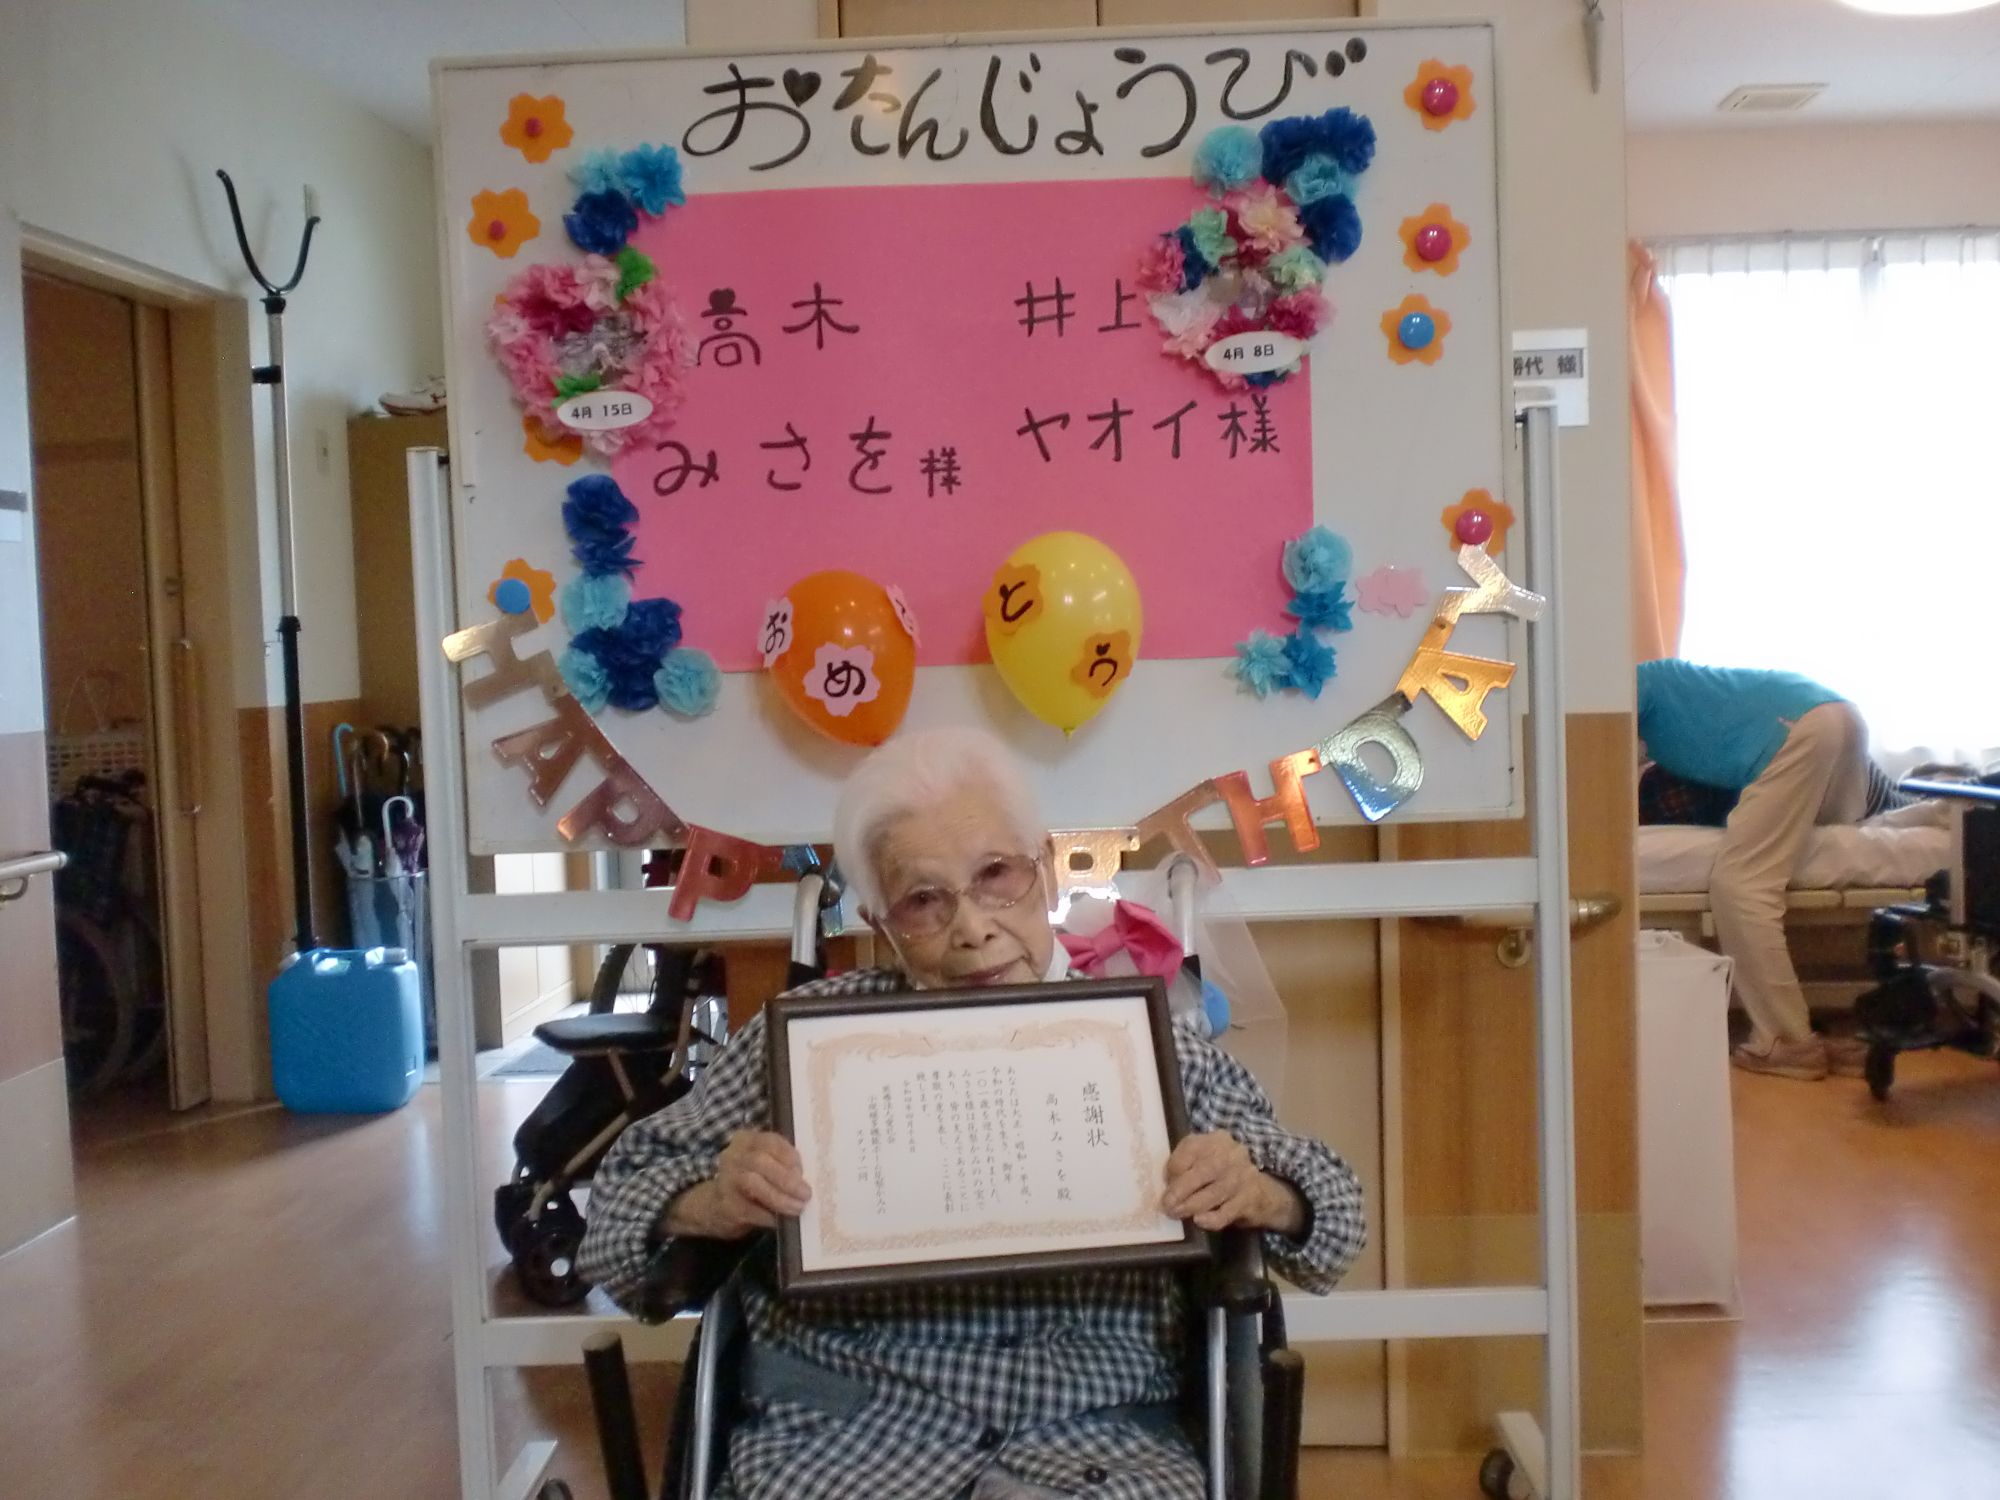 おたんじょうび
高木
みさを様
4月 15日
井上
ヤオイ様
4月 8日
代 様
おめ
とう
HAPP
THDAY
感謝状
高木みさを殿
あなたは大正・昭和・平成・
令和の時代を生き、御年
一〇一歳を迎えられました。
みさを様は花梨かみのの宝で
あり、皆の支えであることに
尊敬の意を表し、ここに表彰
致します。
令和四年四月十五日
スタッフ一同